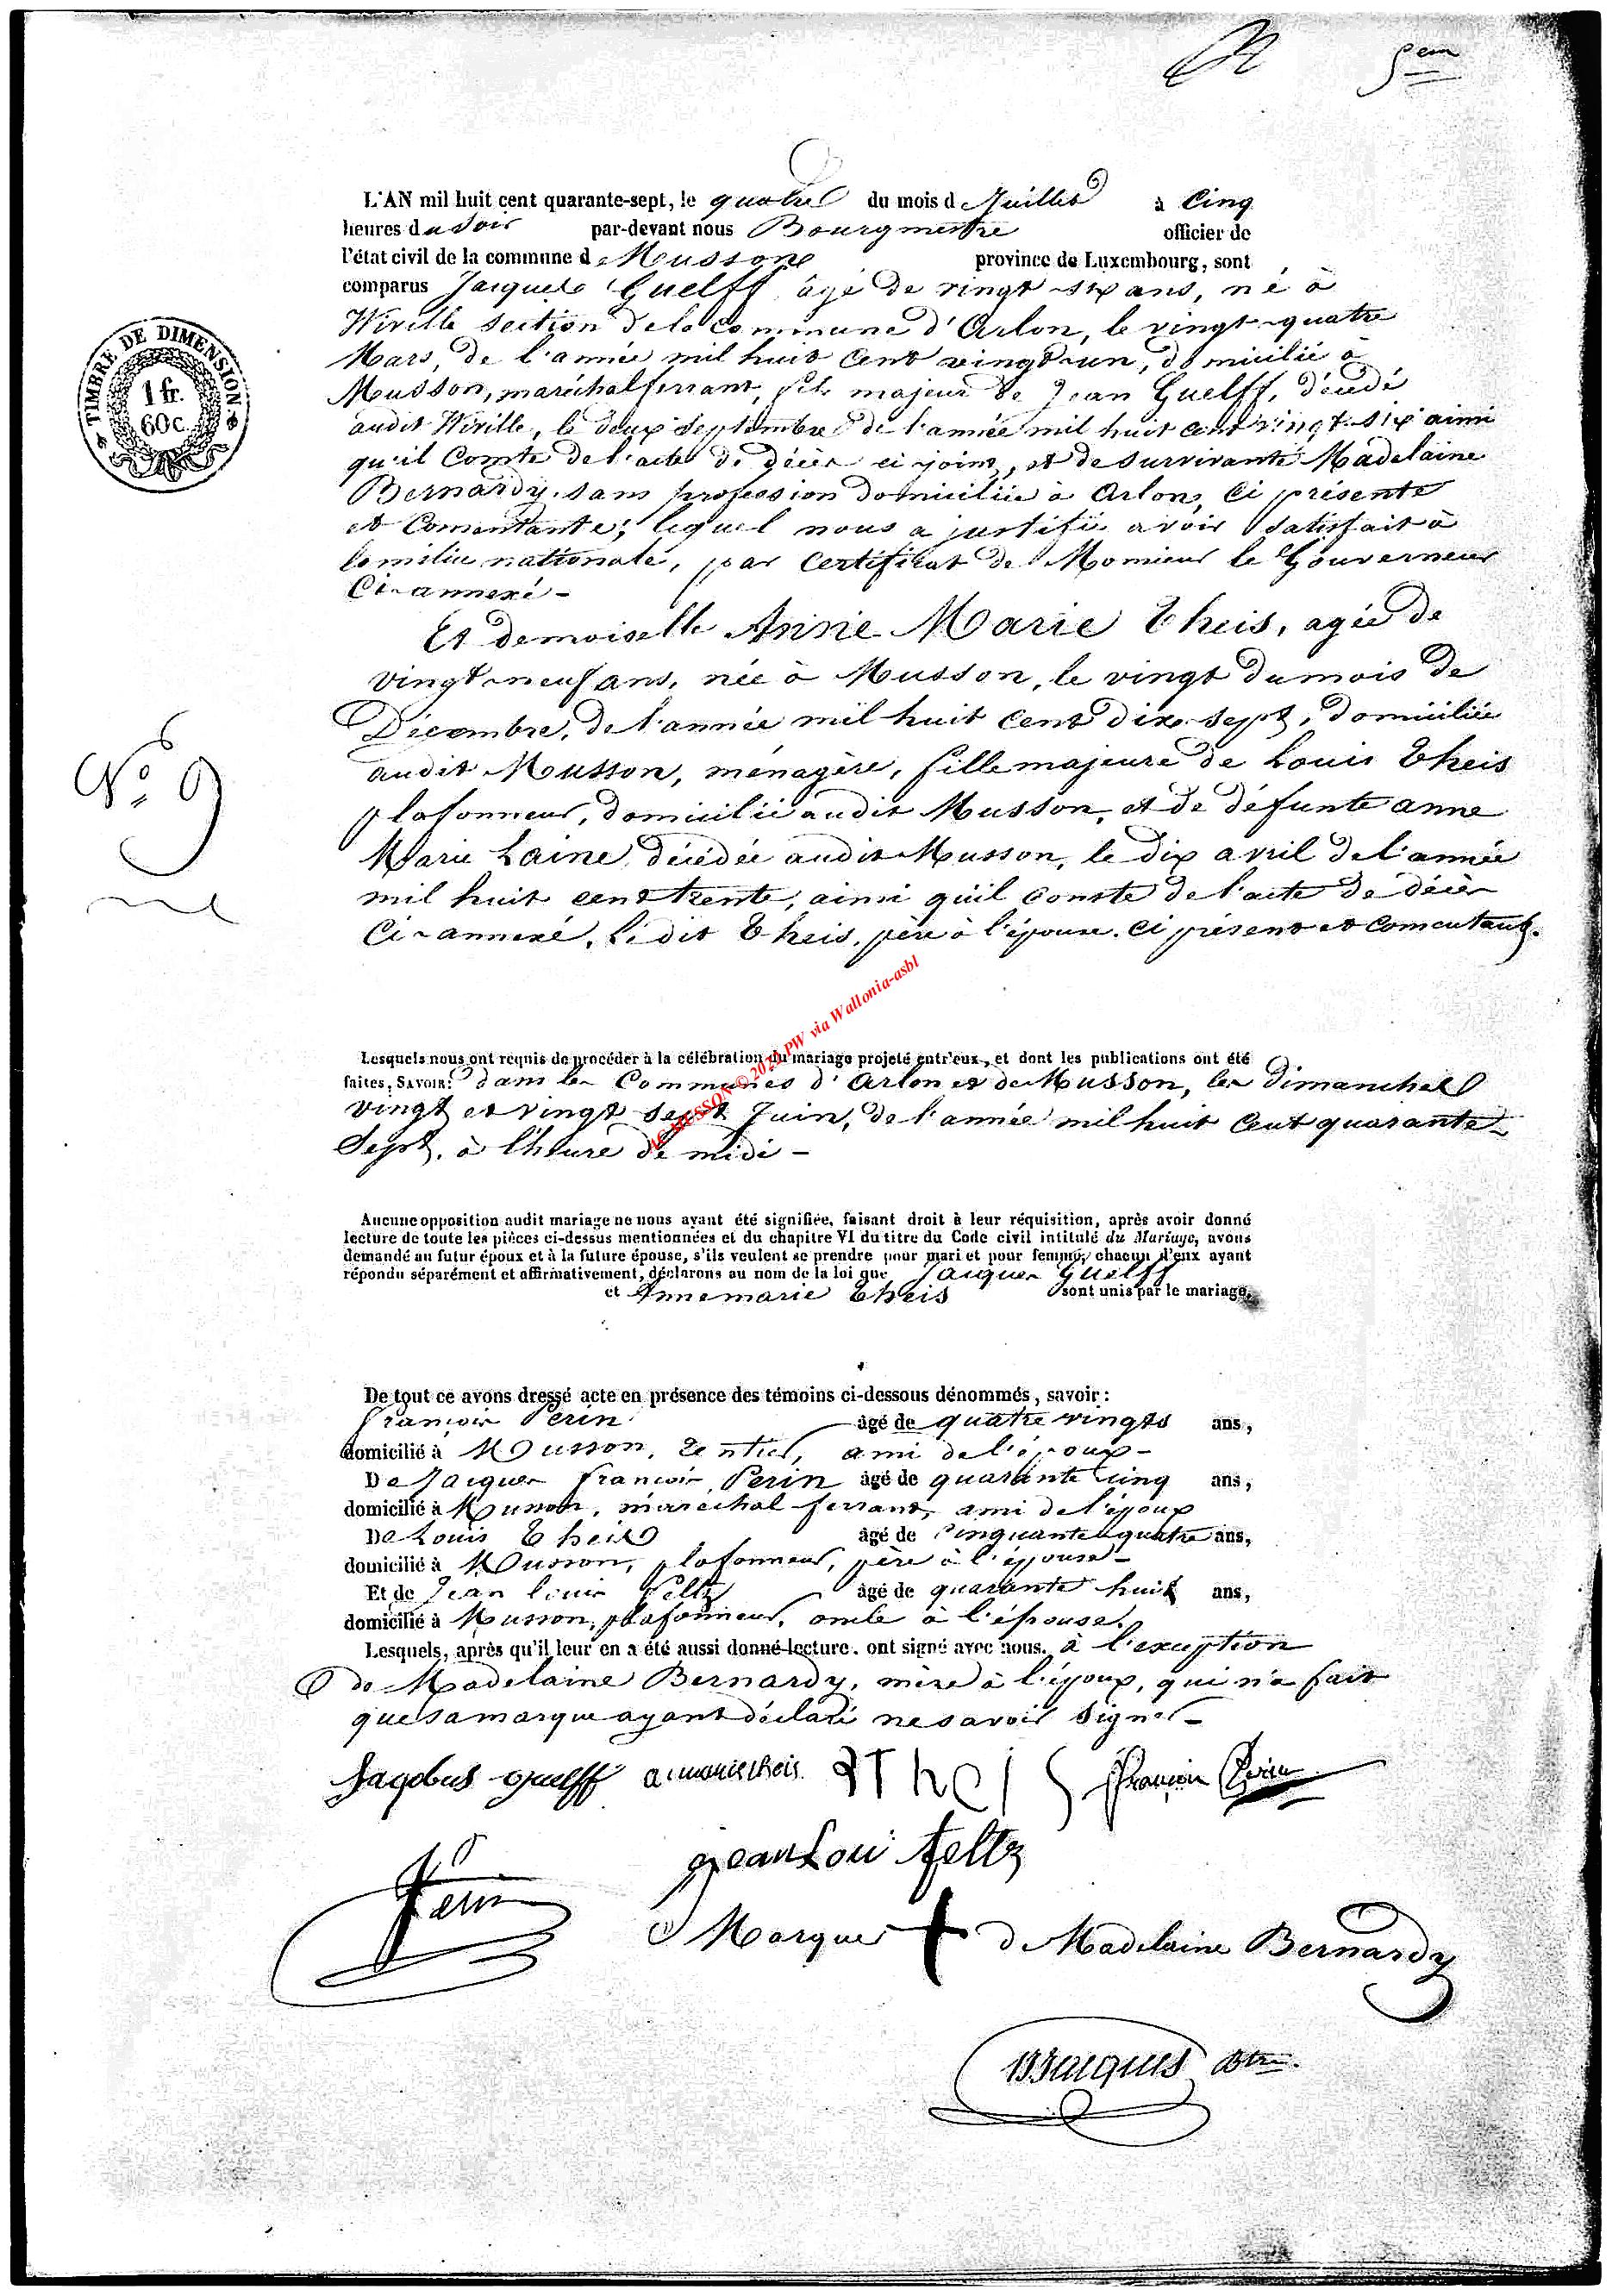 5em
L'AN mil huit cent quarante-sept, le quatre du mois d Juillet à Cinq
heures du soir par-devant nous Bourgmestre officier de
l'état civil de la commune de Musson province de Luxembourg, sont
comparus Jacques Guelff, âgé de vingt-six ans, né à
Wiville section de la commune d'Arlon, le vingt-quatre
Mars, de l'année mil huit cent vingt-un, domicilié à
Musson, maréchal ferrant, fils majeur de Jean Guelff, décédé
audit Wiville, le deux septembre de l'année mil huit cent vingt-six ainsi
qu'il Conste de l'acte de décès ci joint, et de survivante Madelaine
Bernardy, sans profession domiciliée à Arlon, ci présente
et Consentante; lequel nous a justifié avoir satisfait à
la milice nationale, par Certificat de Monsieur le Gouverneur
Ci-annexé -
TIMBRE DE DIMENSION
1 fr.
60 c.
Et demoiselle Anne Marie Theis, agée de
vingt-neuf ans, née à Musson, le vingt du mois de
Décembre, de l'année mil huit cent dix-sept, domiciliée
audit Musson, ménagère, fille majeure de Louis Theis
plafonneur, domicilié audit Musson, et de défunte anne
Marie Laine, décédée audit Musson, le dix avril de l'année
mil huit cent trente, ainsi qu'il conste de l'acte de décès
Ci-annexé, Ledit Theis, père à l'épouse, ci présent et consentant.
No 9
Lesquels nous ont requis de procéder à la célébration du mariage projeté entr'eux, et dont les publications ont été
faites, SAVOIR: dans les Communes d'Arlon et de Musson, les dimanches
vingt et vingt sept Juin, de l'année mil huit Cent quarante-
Sept, à l'heure de midi -
AC MUSSON © 2023 PW via Wallonia-asbl
Aucune opposition audit mariage ne nous ayant été signifiée, faisant droit à leur réquisition, après avoir donné
lecture de toute les pièces ci-dessus mentionnées et du chapitre VI du titre du Code civil intitulé du Mariage, avons
demandé au futur époux et à la future épouse, s'ils veulent se prendre pour mari et pour femme, chacun d'eux ayant
répondu séparément et affirmativement, déclarons au nom de la loi que Jacques Guelff
et Anne marie Theis sont unis par le mariage.
De tout ce avons dressé acte en présence des témoins ci-dessous dénommés, savoir:
François Perin âgé de quatre vingts ans,
domicilié à Musson, rentier, ami de l'époux -
De Jacques François Perin âgé de quarante cinq ans,
domicilié à Musson, maréchal ferrant, ami de l'époux
De Louis Theis âgé de cinquante quatre ans,
domicilié à Musson, plafonneur, père à l'épouse -
Et de Jean Louis Feltz âgé de quarante huit ans,
domicilié à Musson, plafonneur, oncle à l'épouse.
Lesquels, après qu'il leur en a été aussi donné lecture, ont signé avec nous, à l'exception
de Madelaine Bernardy, mère à l'époux, qui n'a fait
que sa marque ayant déclaré ne savoir signer -
Jagobus guelff a marie theis LTheis François Perin
jean Loui feltz
Perin
Marque + de Madelaine Bernardy
Jacques Btre.